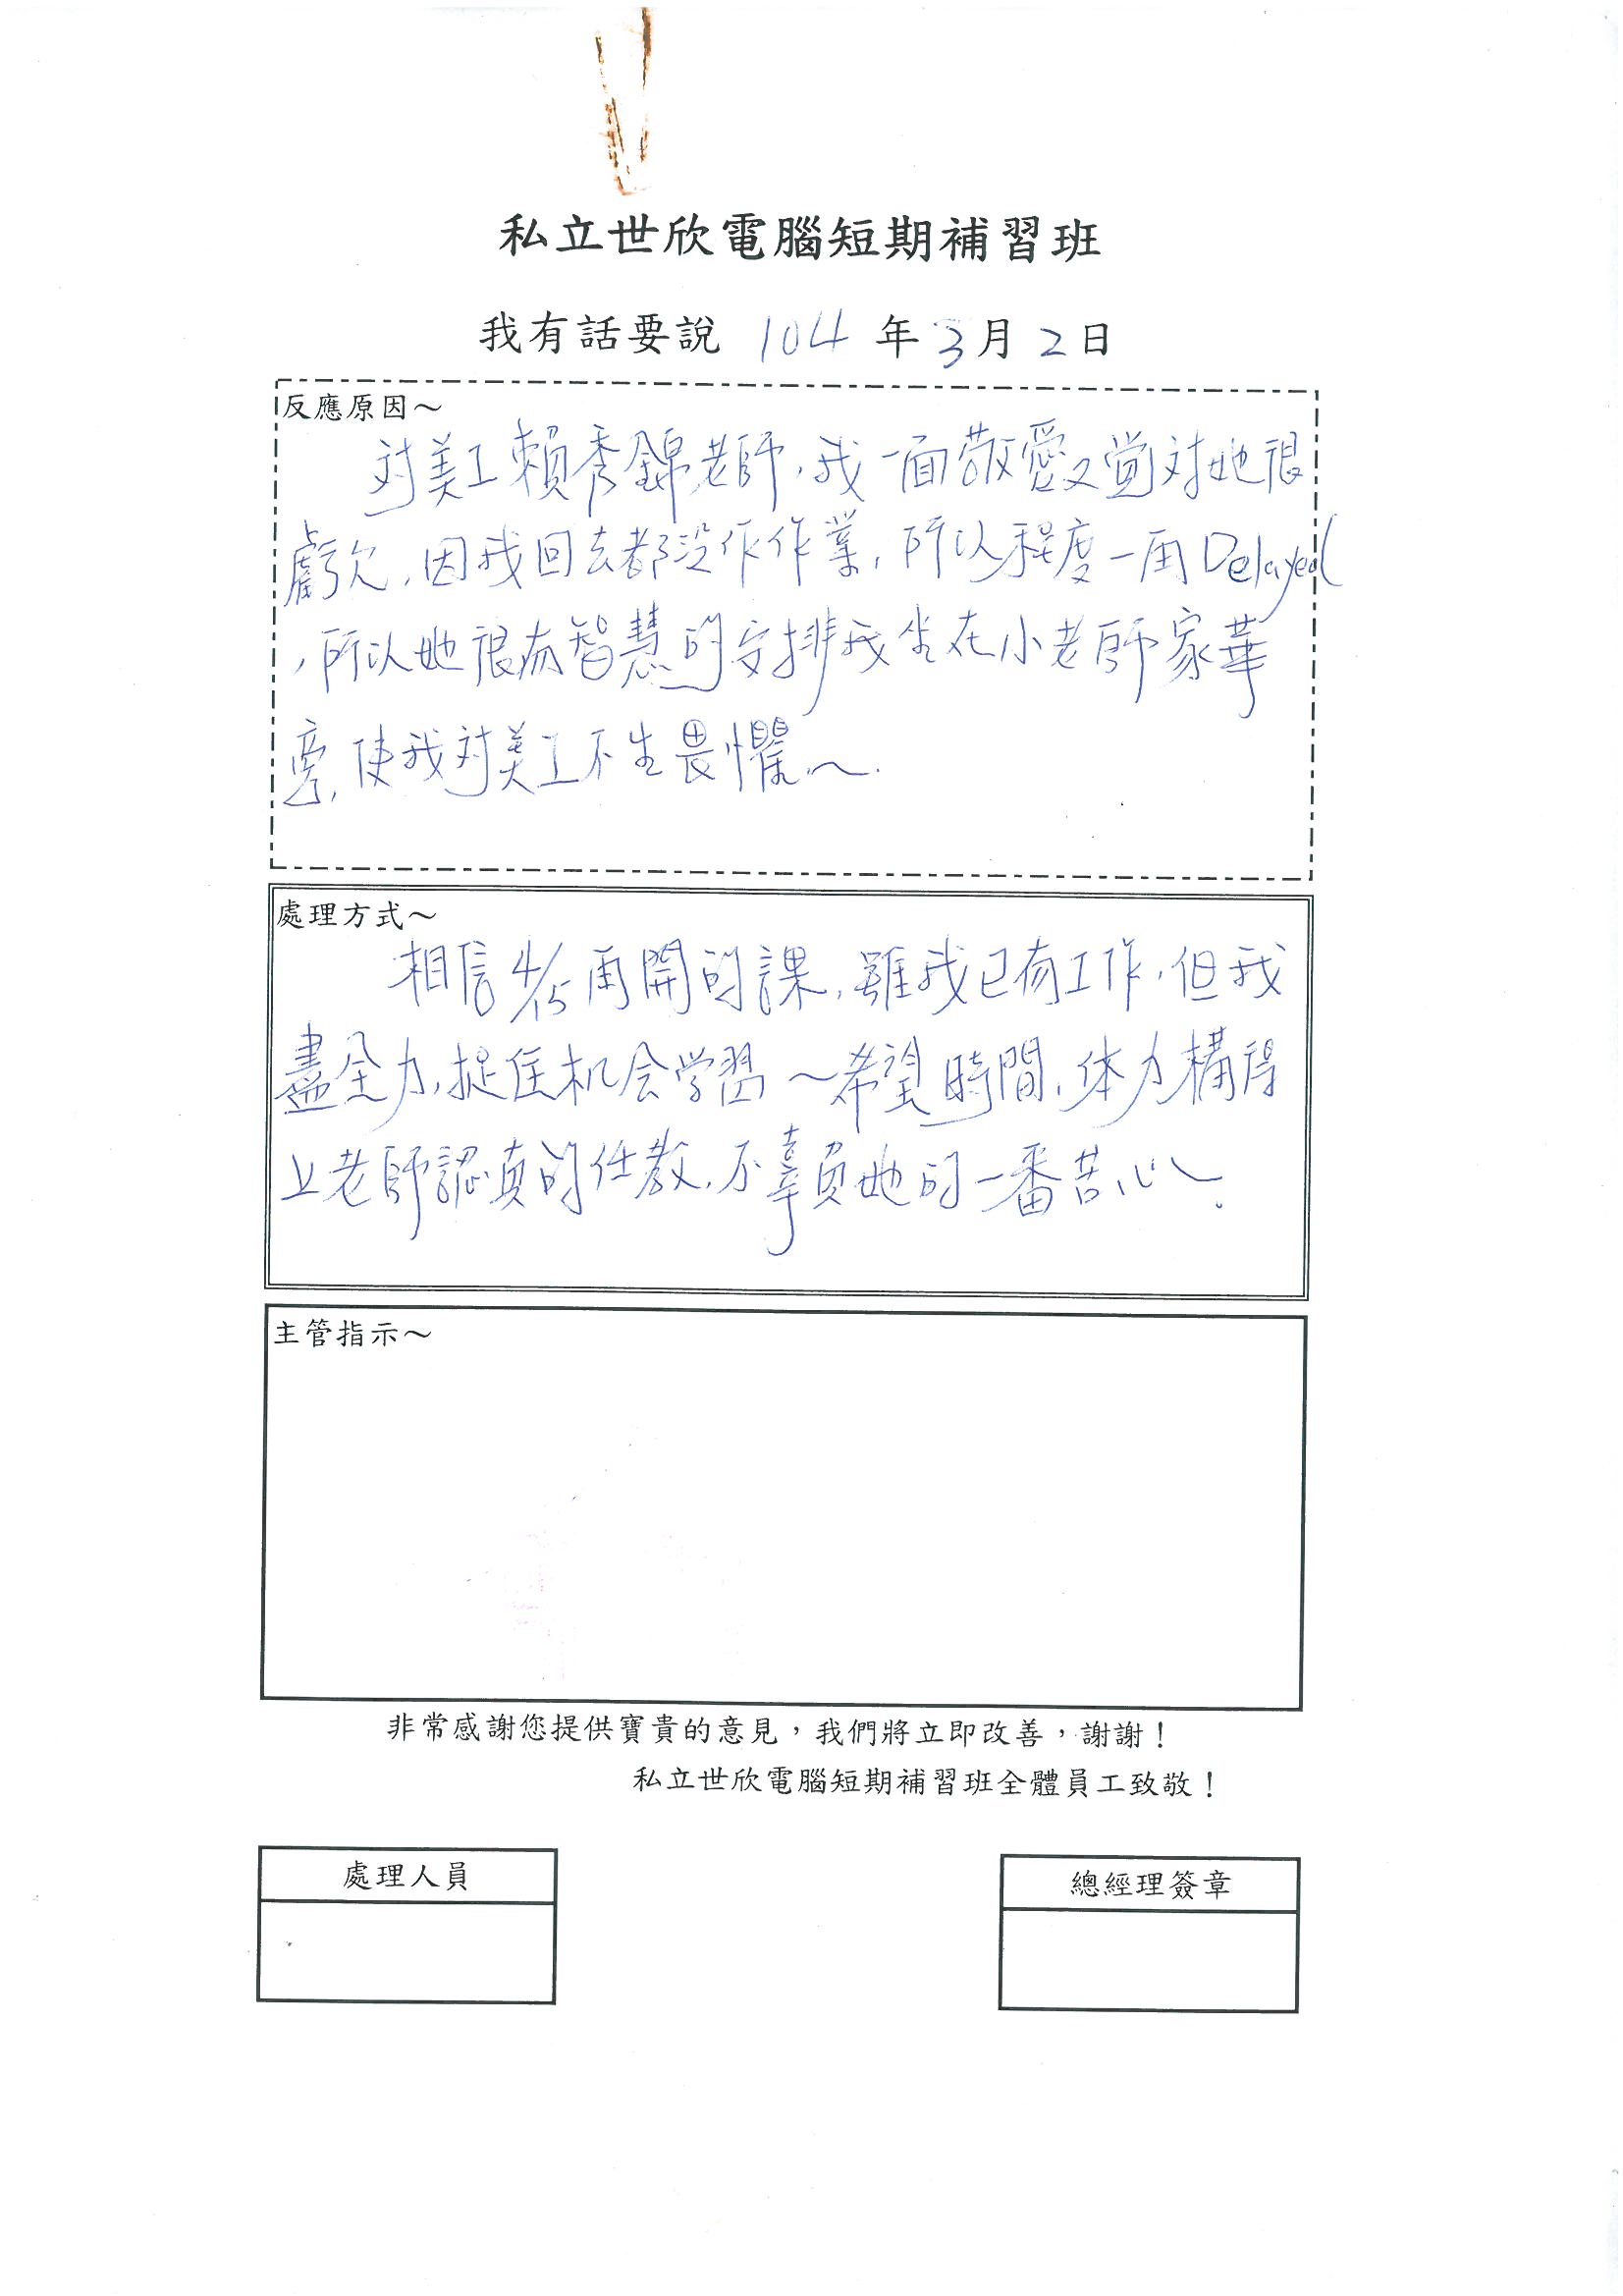 私立世欣電腦短期補習班
我有話要說 104 年 3 月 2 日
反應原因～
対美工賴秀錦老師,我一面敬愛又覚対她很
虧欠,因我回去都没作作業,所以程度一再Delayed
,所以她很有智慧的安排我坐在小老師家華
旁,使我対美工不生畏懼～.
處理方式～
相信4/15再開的課,雖我已有工作,但我
盡全力,捉住机会学習～希望時間,体力構得
上老師認真的任教,不辜負她的一番苦心～.
主管指示～
非常感謝您提供寶貴的意見，我們將立即改善，謝謝！
私立世欣電腦短期補習班全體員工致敬！
處理人員
總經理簽章